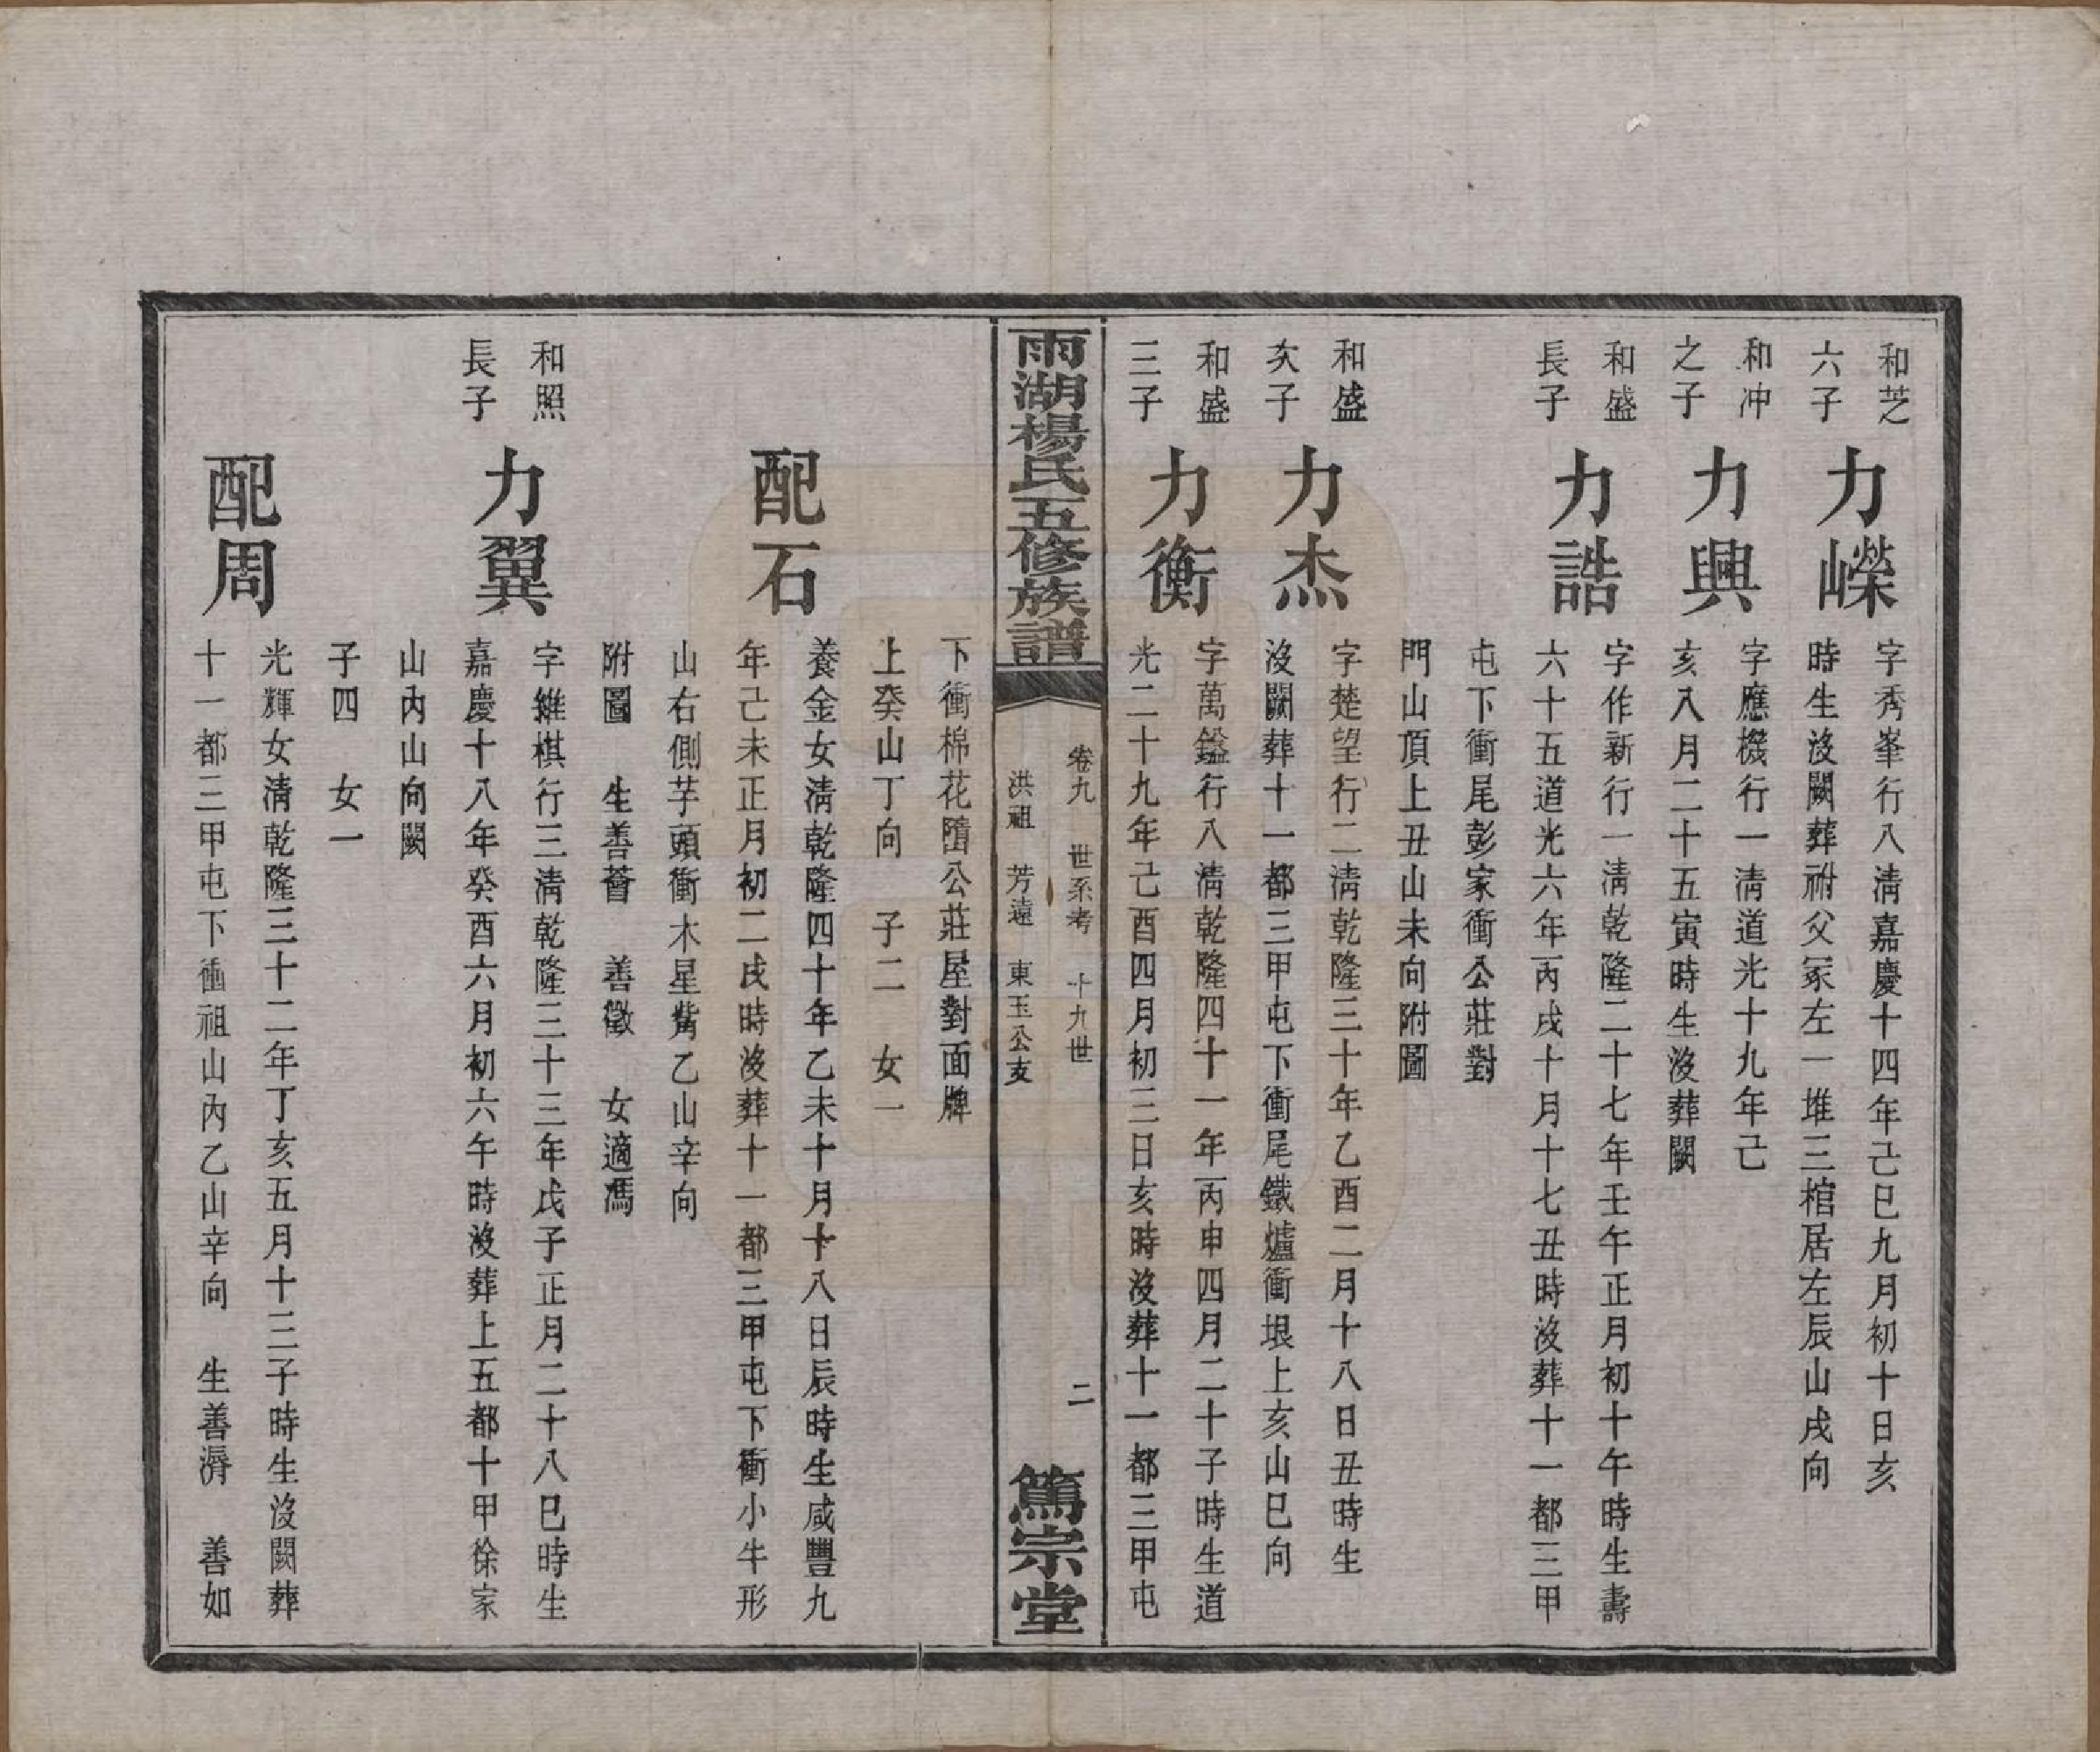 和芝
六子
力嶸
字秀峯行八清嘉慶十四年己巳九月初十日亥
時生沒闕葬祔父冢左一堆三棺居左辰山戌向
和冲
之子
力興
字應機行一清道光十九年己
亥八月二十五寅時生沒葬闕
和盛
長子
力誥
字作新行一清乾隆二十七年壬午正月初十午時生壽
六十五道光六年丙戌十月十七丑時沒葬十一都三甲
屯下衝尾彭家衝公莊對
門山頂上丑山未向附圖
和盛
次子
力杰
字楚望行二清乾隆三十年乙酉二月十八日丑時生
沒闕葬十一都三甲屯下衝尾鐵爐衝垠上亥山巳向
和盛
三子
力衡
字萬鎰行八清乾隆四十一年丙申四月二十子時生道
光二十九年己酉四月初三日亥時沒葬十一都三甲屯
雨湖楊氏五修族譜
卷九 世系考 十九世
洪祖 芳遠 東玉公支
二
篤宗堂
下衝棉花隋公莊屋對面牌
上癸山丁向 子二 女一
配石
養金女清乾隆四十年乙未十月十八日辰時生咸豐九
年己未正月初二戌時沒葬十一都三甲屯下衝小牛形
山右側芋頭衝木星觜乙山辛向
附圖 生善薈 善徵 女適馮
和照
長子
力翼
字維棋行三清乾隆三十三年戊子正月二十八巳時生
嘉慶十八年癸酉六月初六午時沒葬上五都十甲徐家
山內山向闕
子四 女一
配周
光輝女清乾隆三十二年丁亥五月十三子時生沒闕葬
十一都三甲屯下衝祖山內乙山辛向 生善溽 善如